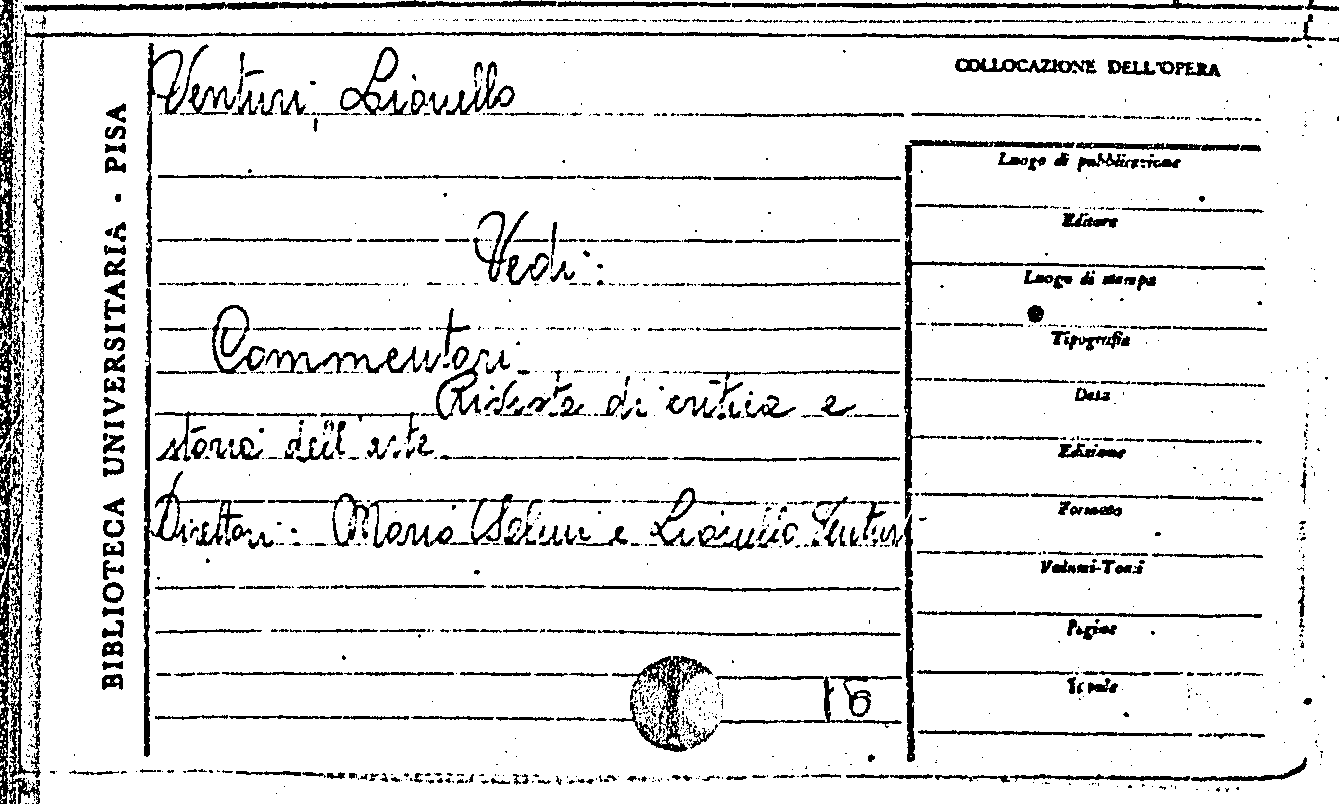 BIBLIOTECA UNIVERSITARIA - PISA
Venturi, Lionello
COLLOCAZIONE DELL'OPERA
Vedi:
Commentari.
Rivista di critica e
storia dell'arte
Direttori: Mario Salmi e Lionello Venturi
Luogo di pubblicazione
Editore
Luogo di stampa
Tipografia
Data
Edizione
Formato
Volumi-Tomi
Pagine